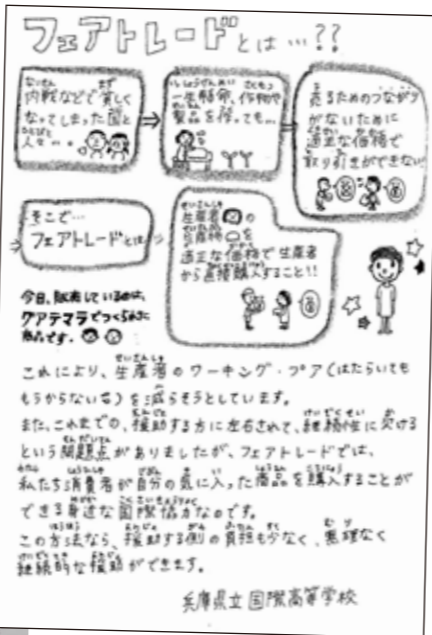 フェアトレードとは…??
内戦などで貧しく
なってしまった国と
人々…。
一生懸命、作物や
製品を作っても…
売るためのつながり
がないために
適正な価格で
取り引きができない
そこで…
フェアトレードとは
生産者の
生産物を
適正な価格で生産者
から直接購入すること!!
今日、販売しているのは、
グアテマラでつくられた
商品です。
これにより、生産者のワーキング・プア(はたらいても
もうからない者)を減らそうとしています。
また、これまでの、援助する方に左右されて、継続性に欠ける
という問題点がありましたが、フェアトレードでは、
私たち消費者が自分の気に入った商品を購入することが
できる身近な国際協力なのです。
この方法なら、援助する側の負担も少なく、無理なく
継続的な援助ができます。
兵庫県立国際高等学校